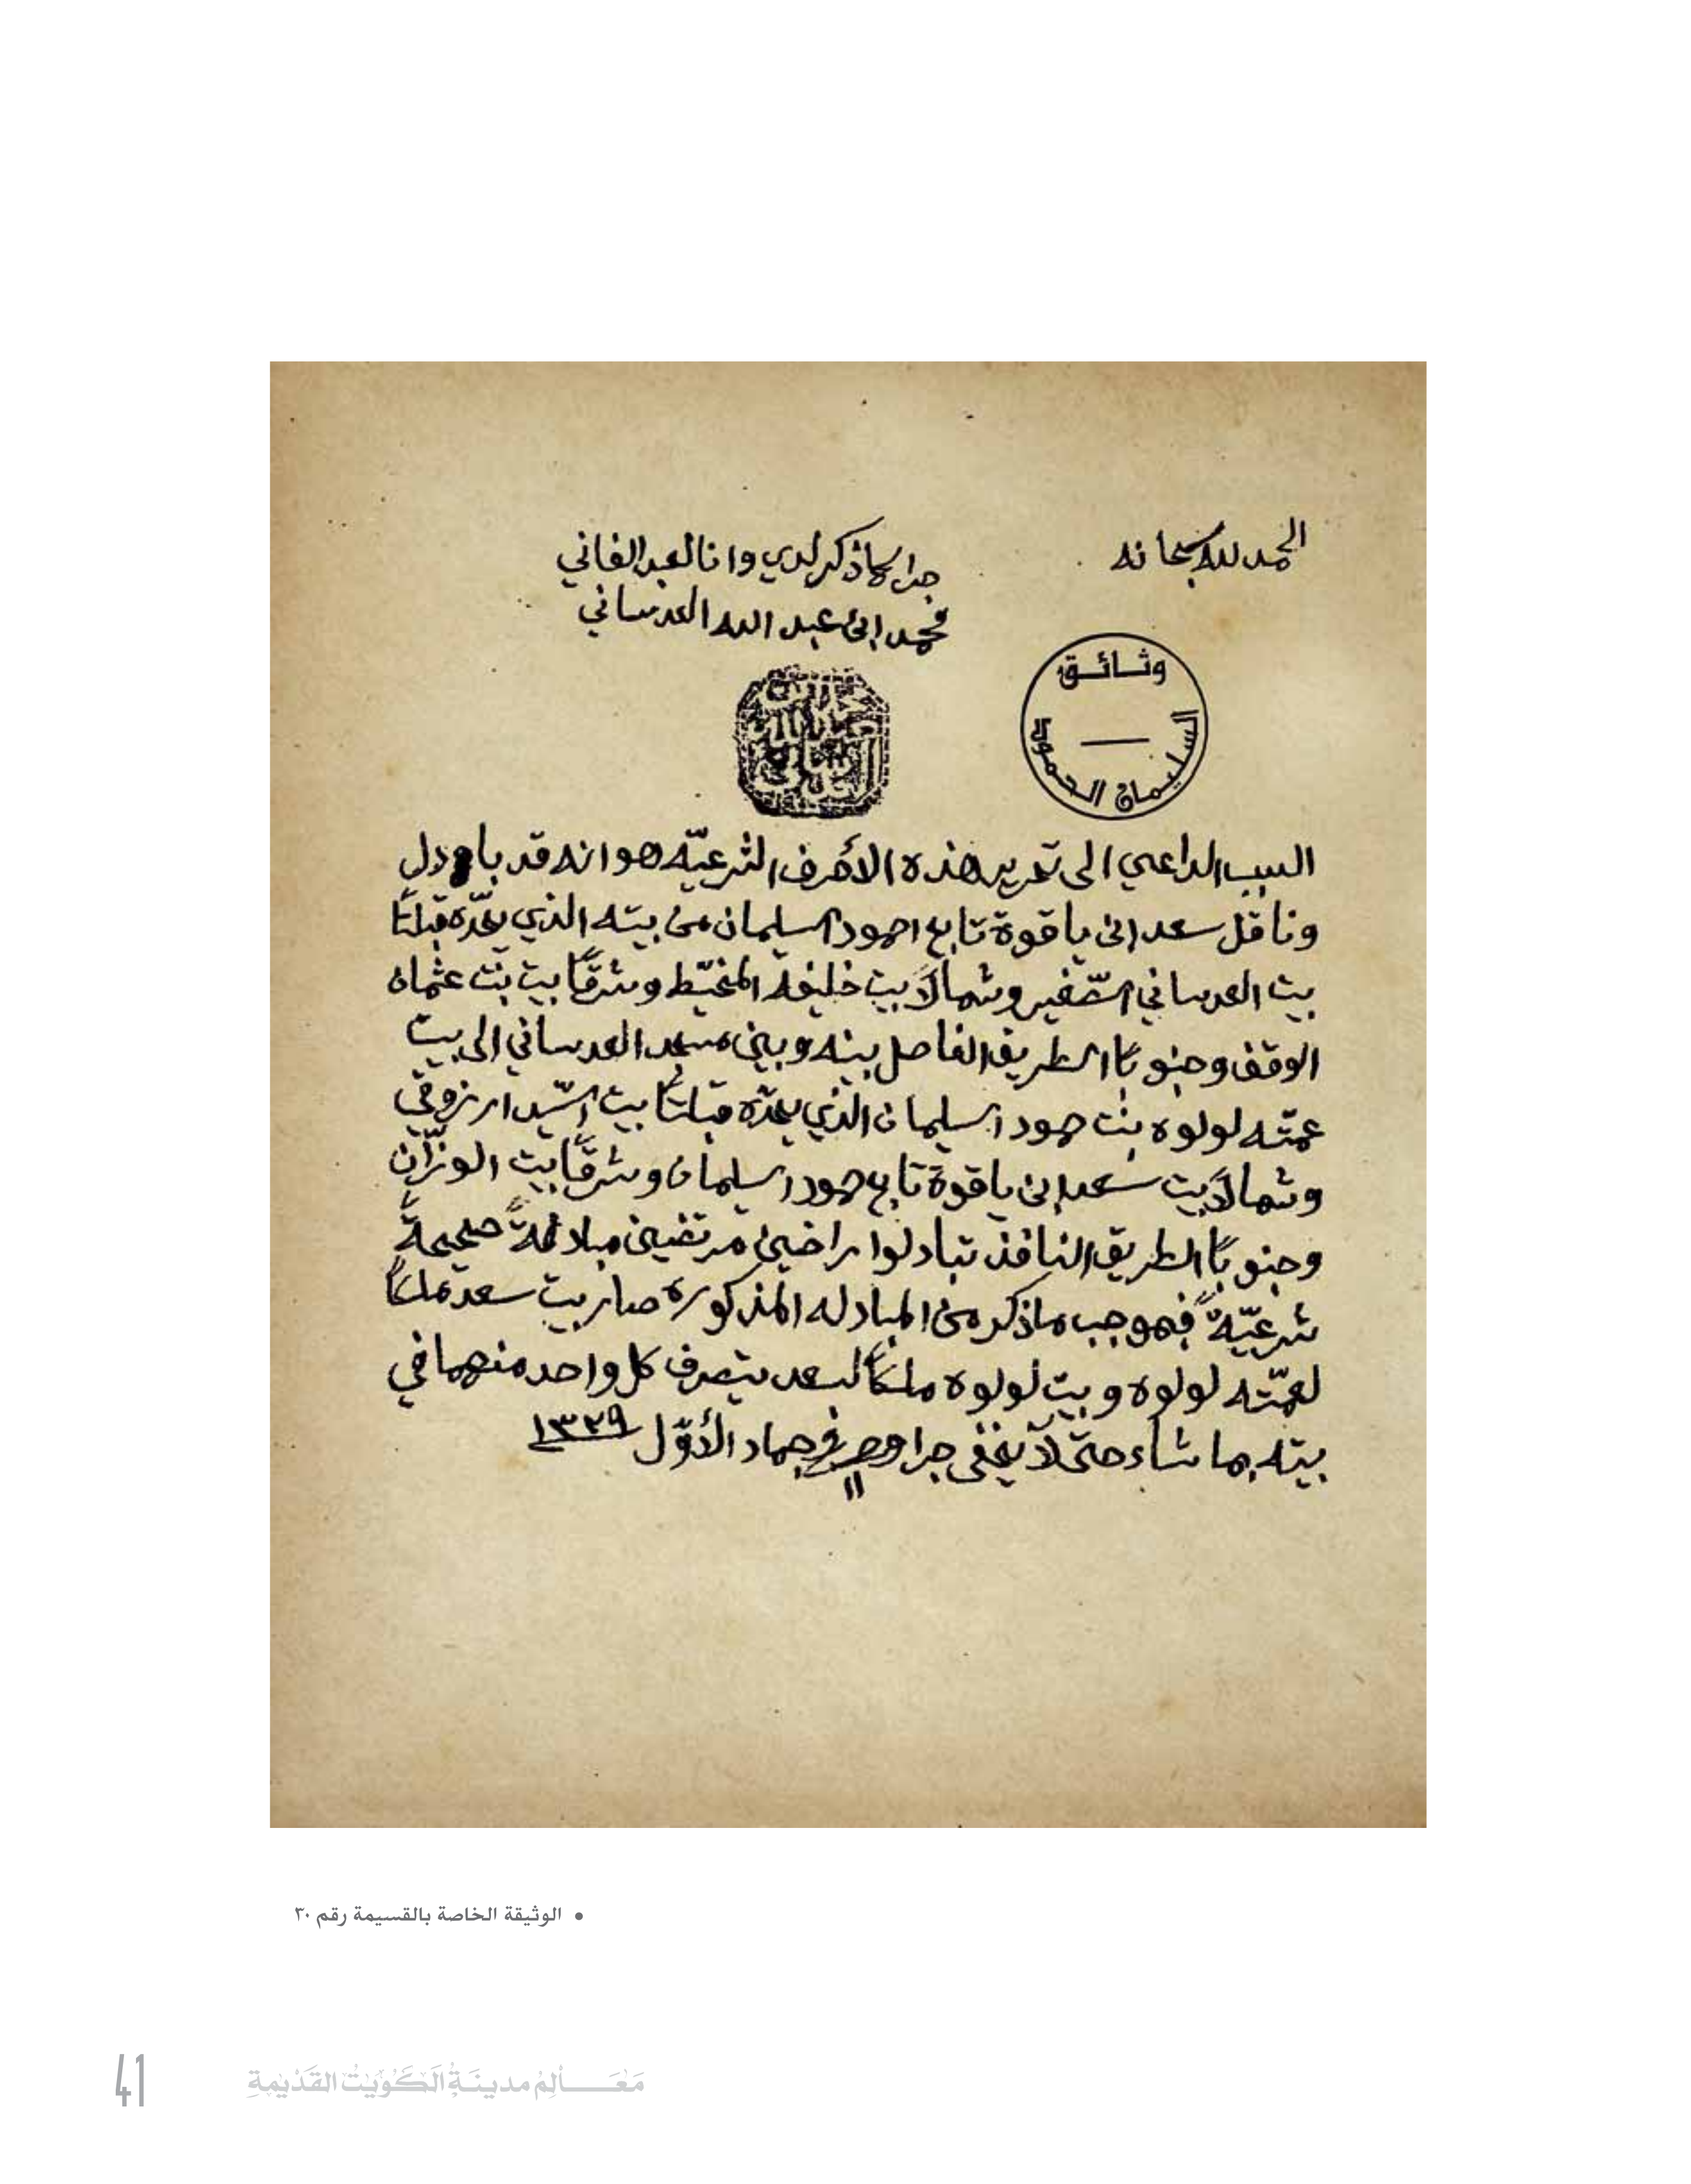 الحمد لله سبحانه
جرا ما ذكر لدي وانا العبد الفاني
محمد ابن عبد الله العدساني
وثائق
السليمان الحمود
السبب الداعي الى تحرير هذه الأحرف الشرعيّه هو انه قد بادل
وناقل سعد ابن ياقوة تابع احمود السليمان من بيته الذي يحدّه قبلتاً
بيت العدساني الصّغير وشمالاً بيت خليفه المخيّط وشرقًا بيت بنت عثمان
الوقف وجنوباً الطريق الفاصل بينه وبين مسجد العدساني الى بيت
عمّته لولوه بنت حمود السليمان الذي يحدّه قبلتاً بيت السّيد ارزوقي
وشمالاً بيت سعد ابن ياقوة تابع حمود السليمان وشرقًا بيت الوزّان
وجنوباً الطريق النافذ تبادلوا راضين مرتضين مبادلةً صحيحةً
شرعيّةً فبموجب ما ذكر من المبادله المذكوره صار بيت سعد ملكاً
لعمّته لولوه وبيت لولوه ملكاً لسعد يتصرف كل واحد منهما في
بيته بما شاء حتى لا يخفى جرا وحرر في جماد الأوّل ١٣٢٩
١١
• الوثيقة الخاصة بالقسيمة رقم ٣٠
41
مَعَــالِمُ مدينَةِ الكُوَيْت القَدْيمةِ